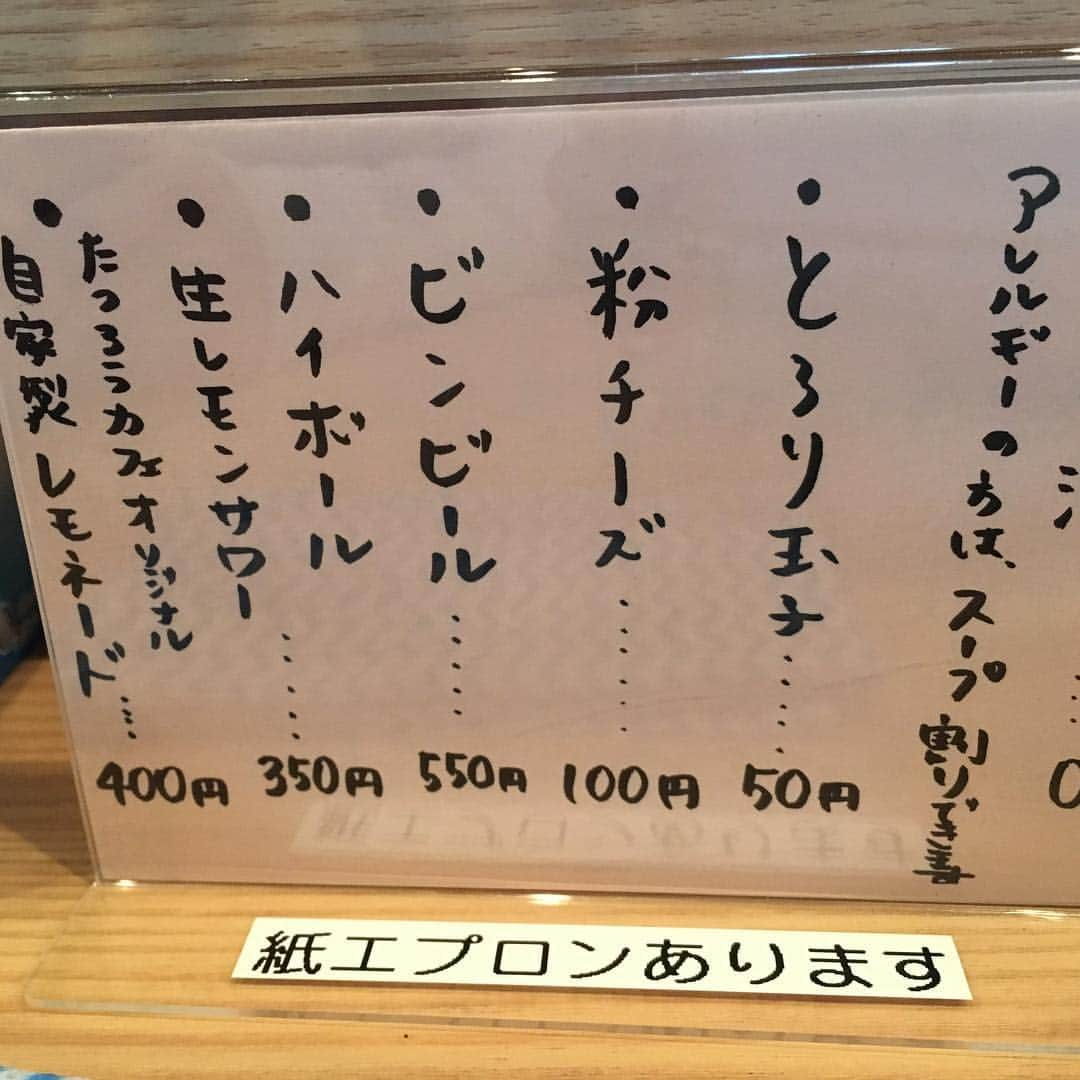 アレルギーの方は、スープ割りできます
・とろり玉子‥‥‥50円
・粉チーズ‥‥‥100円
・ビンビール‥‥‥550円
・ハイボール‥‥‥350円
・生レモンサワー
たつろうカフェオリジナル
・自家製レモネード‥‥400円
紙エプロンあります